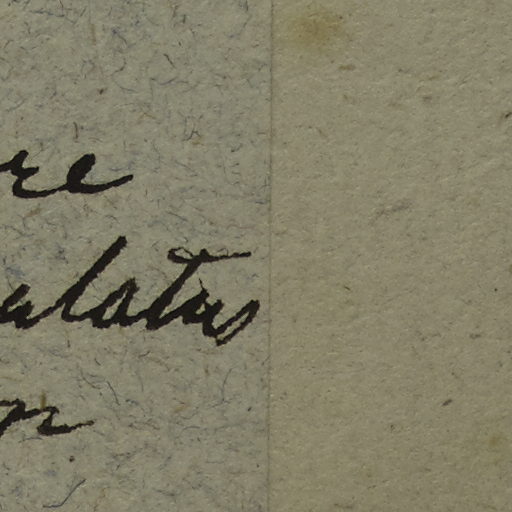 re
ulatus
n